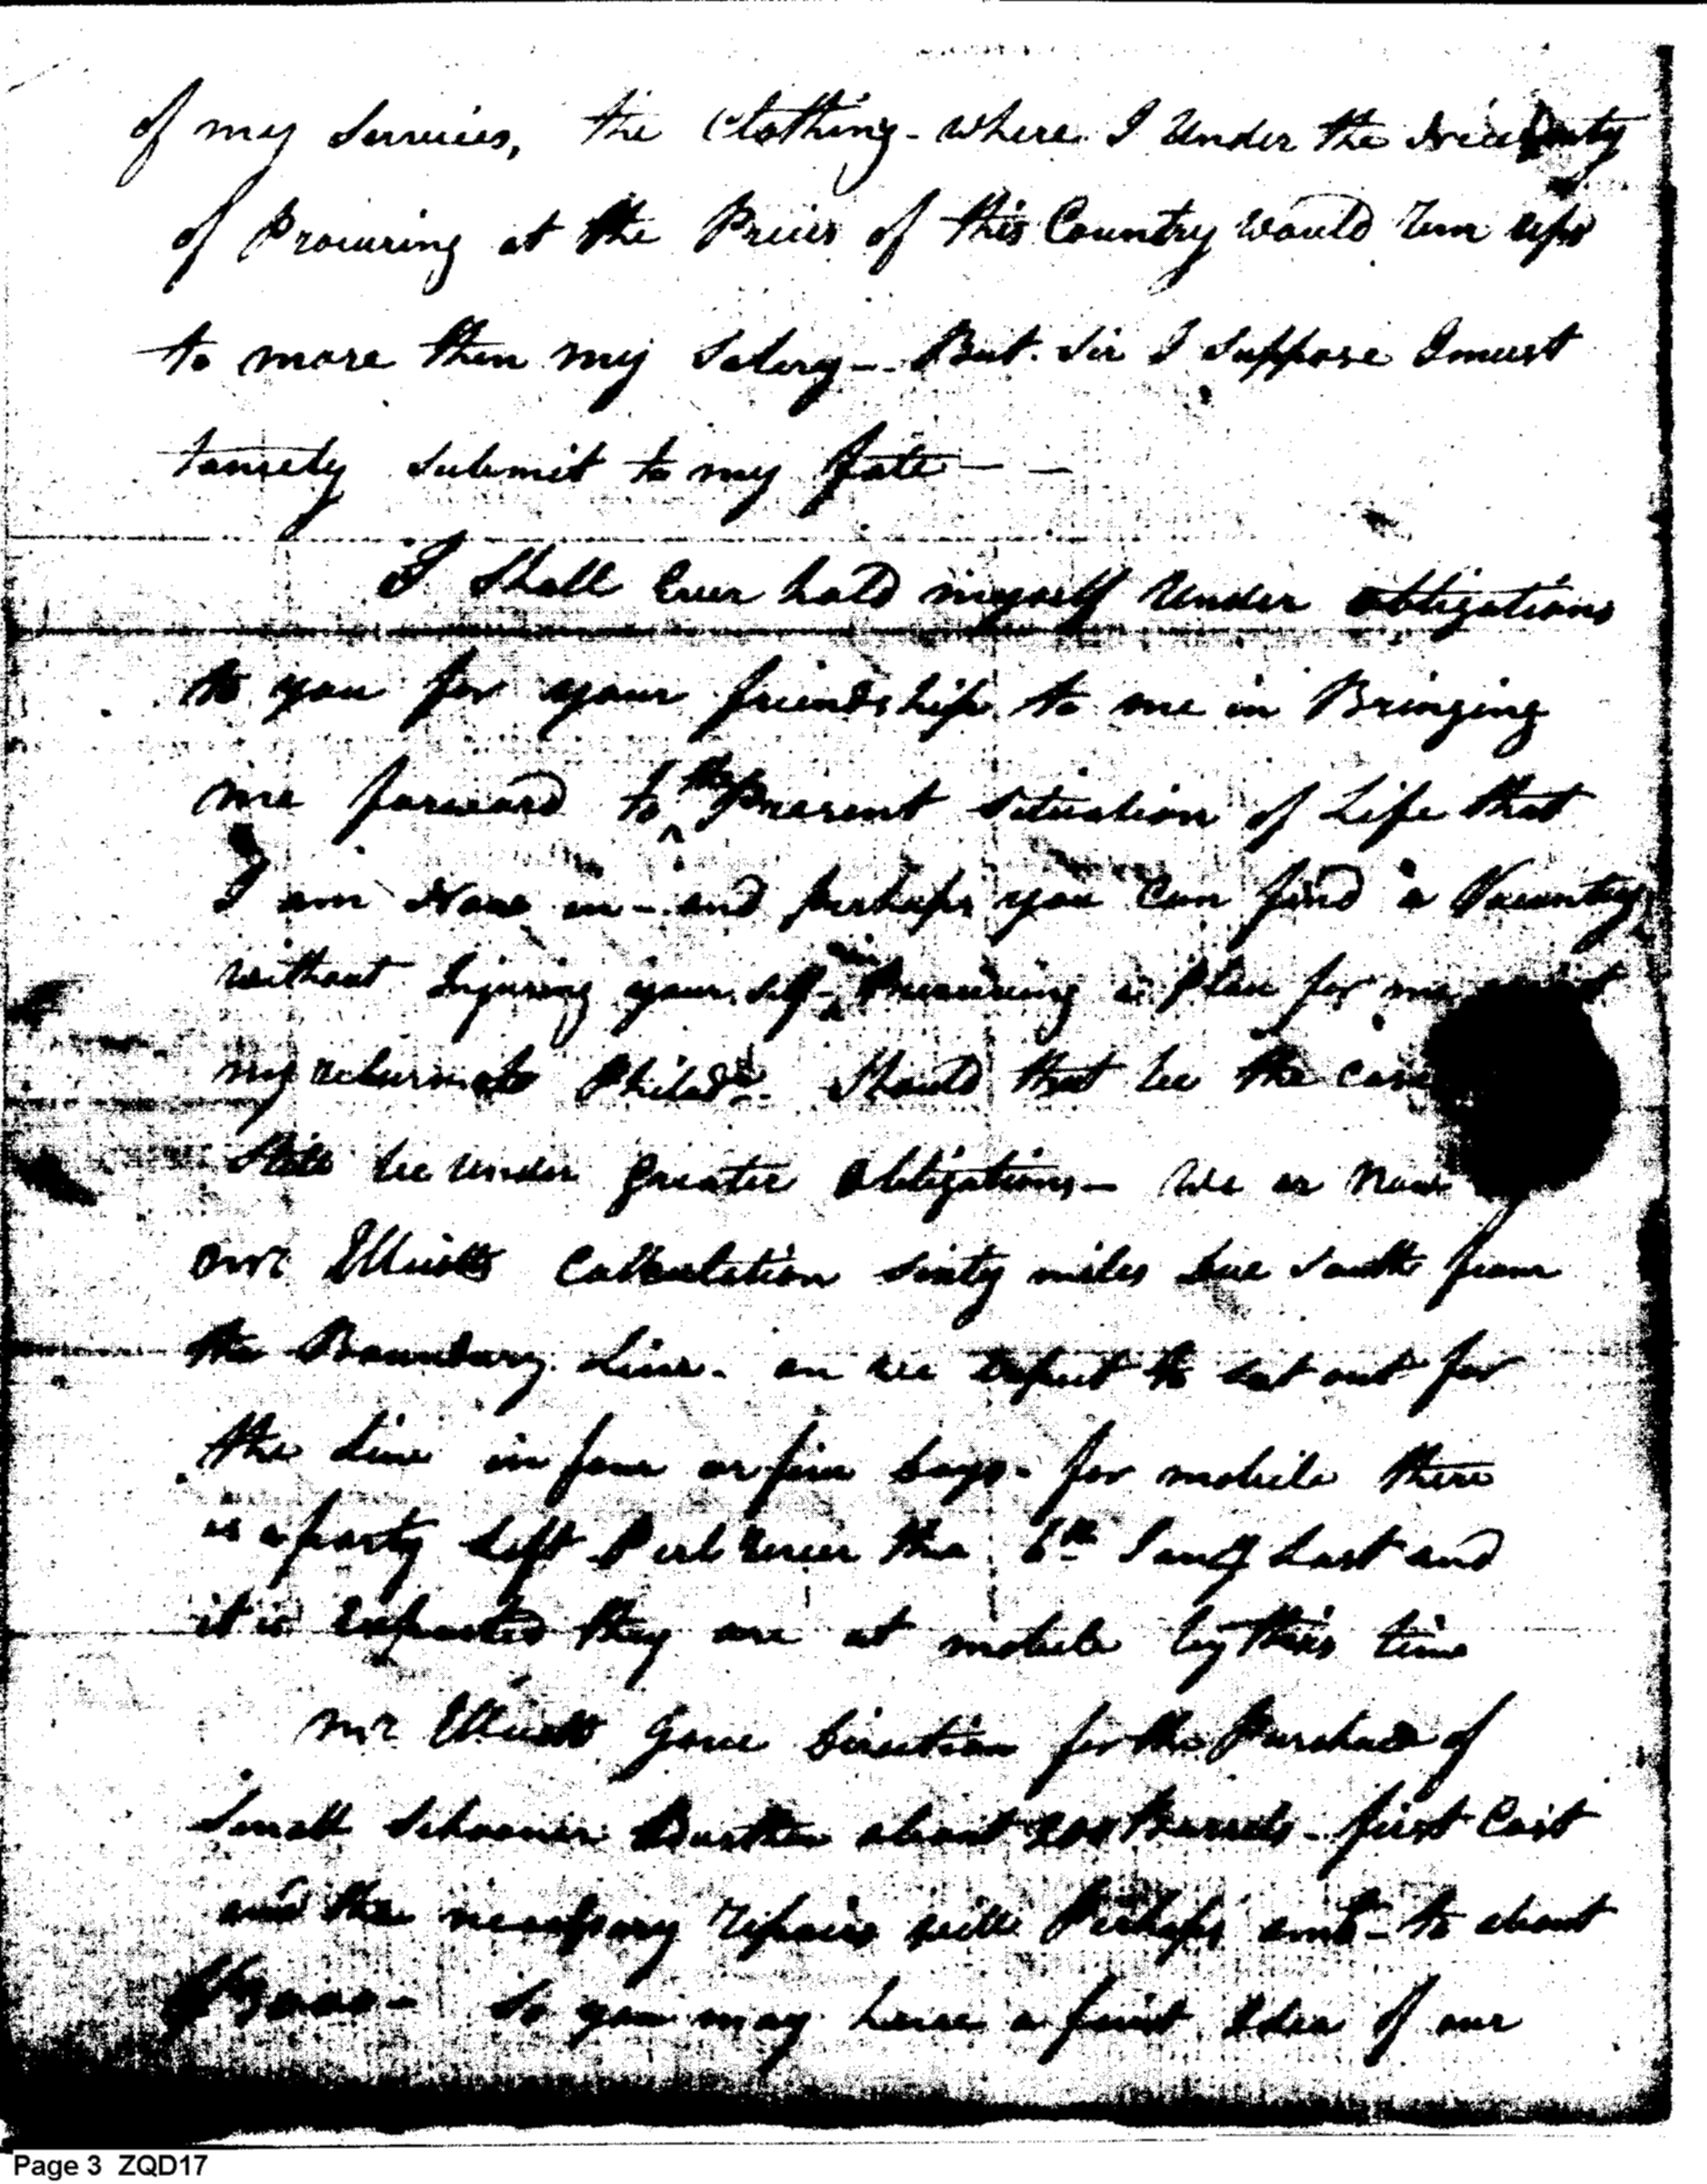 of my Services, the Clothing - where I Under the
of Procuring at the Prices of this Country would Run up
to more then my Salery - But Sir I Suppose I must
tamely Submit to my fate - -
I Shall Ever hold myself Under obligations
to you for your friendship to me in Bringing
me forward to the Present Situation of Life that
I am Now in - and perhaps you Can find a Vacantcy
without Injuring your Self - Procuring a Place for me
my return to Philada. Should that be the case
Still be under greater obligations - We ar Now
Mr. Ellicotts Calkulation Sixty miles due South from
the Boundary Line. an we Expect to Set out for
the Line in four or five days - for mobile there
is a party Left Perl River the 6th Jany Last and
it is Expected they are at mobile by this time
Mr. Ellicott Gave Direction for the Purchase of
Small Schooner Burthen about 200 Barrels - first Cost
and the necessary repairs will Perhaps amt. to about
So you may have a faint Idea of our
Page 3 ZQD17